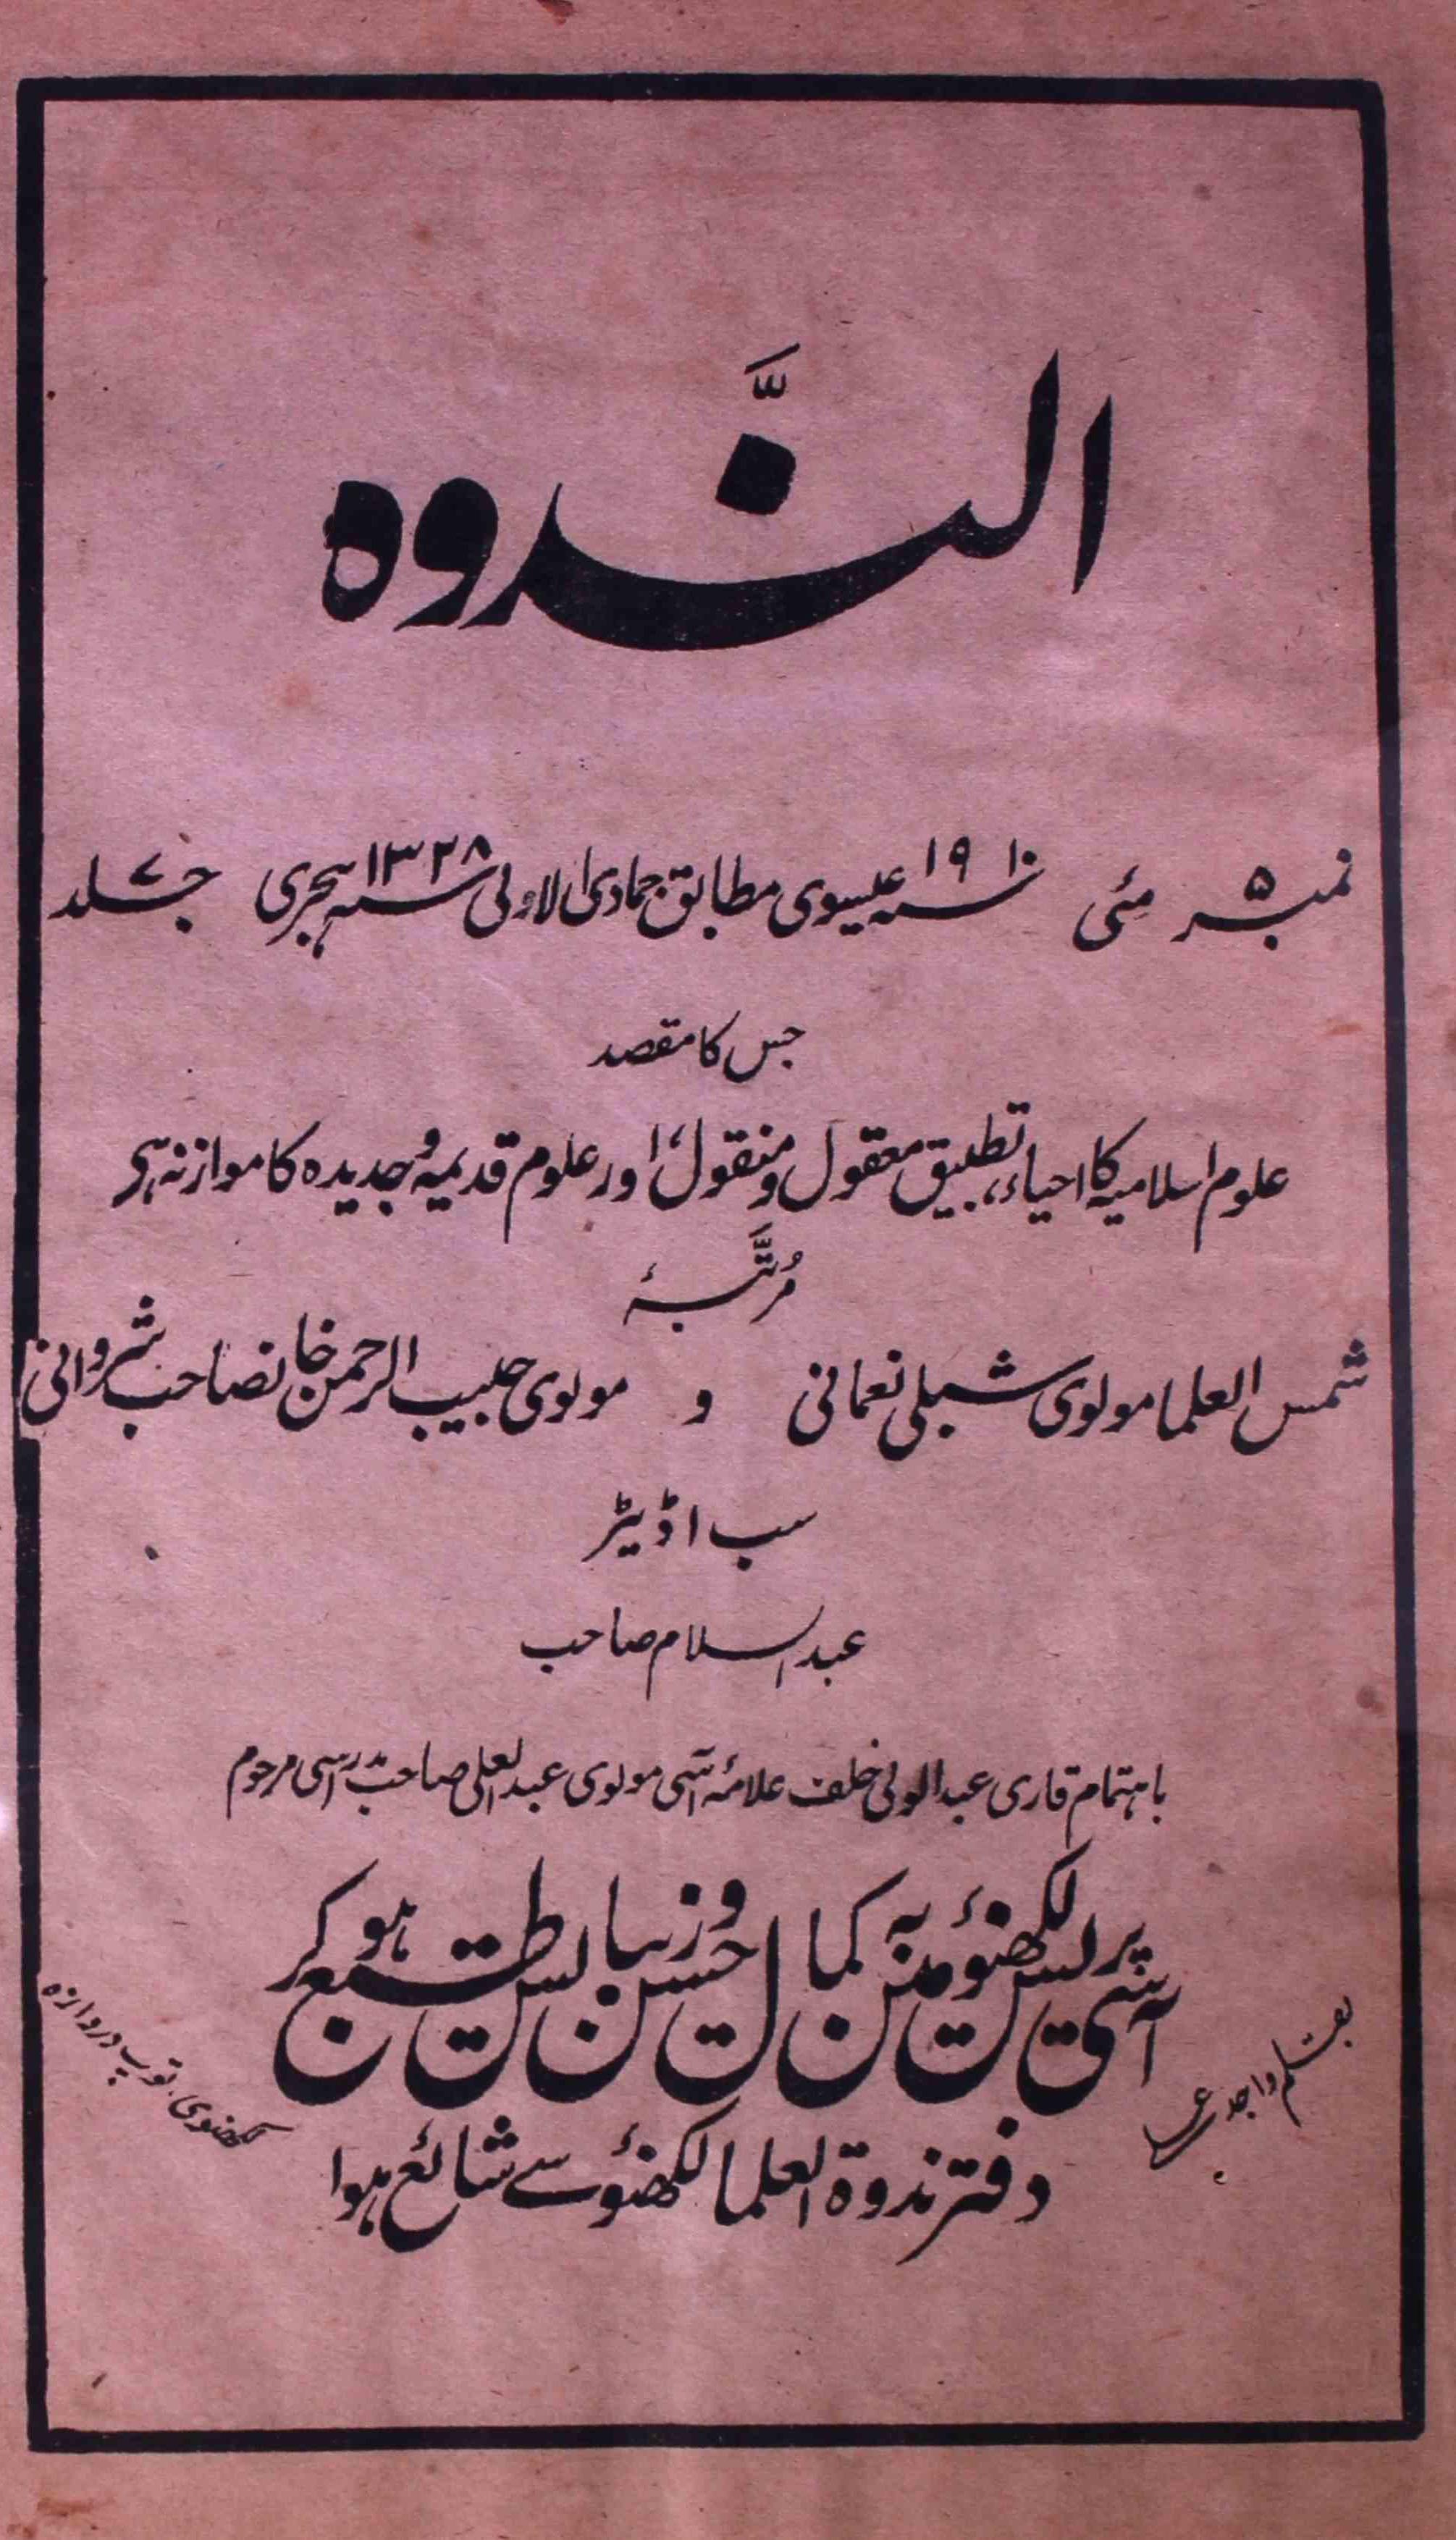 النَّدوہ
نمبر ۵ مئی ۱۹۱۰ سنہ عیسوی مطابق جمادی الاولیٰ ۱۳۲۸ سنہ ہجری جلد ۷
جس کا مقصد
علوم اسلامیہ کا احیاء، تطبیق معقول و منقول، اور علوم قدیمہ و جدیدہ کا موازنہ ہی
مُرتَّبۂ
شمس العلما مولوی شبلی نعمانی و مولوی حبیب الرحمن خانصاحب شروانی
سب اڈیٹر
عبدالسلام صاحب
باہتمام قاری عبدالولی خلف علامۂ آسی مولوی عبدالعلی صاحب مدراسی مرحوم
آسی پریس لکھنؤ مین بہ کمال حسن و زیبایش طبع ہوکر
دفتر ندوۃ العلما لکھنؤ سے شائع ہوا
بقلم واجد
لکھنوی، توپ دروازہ